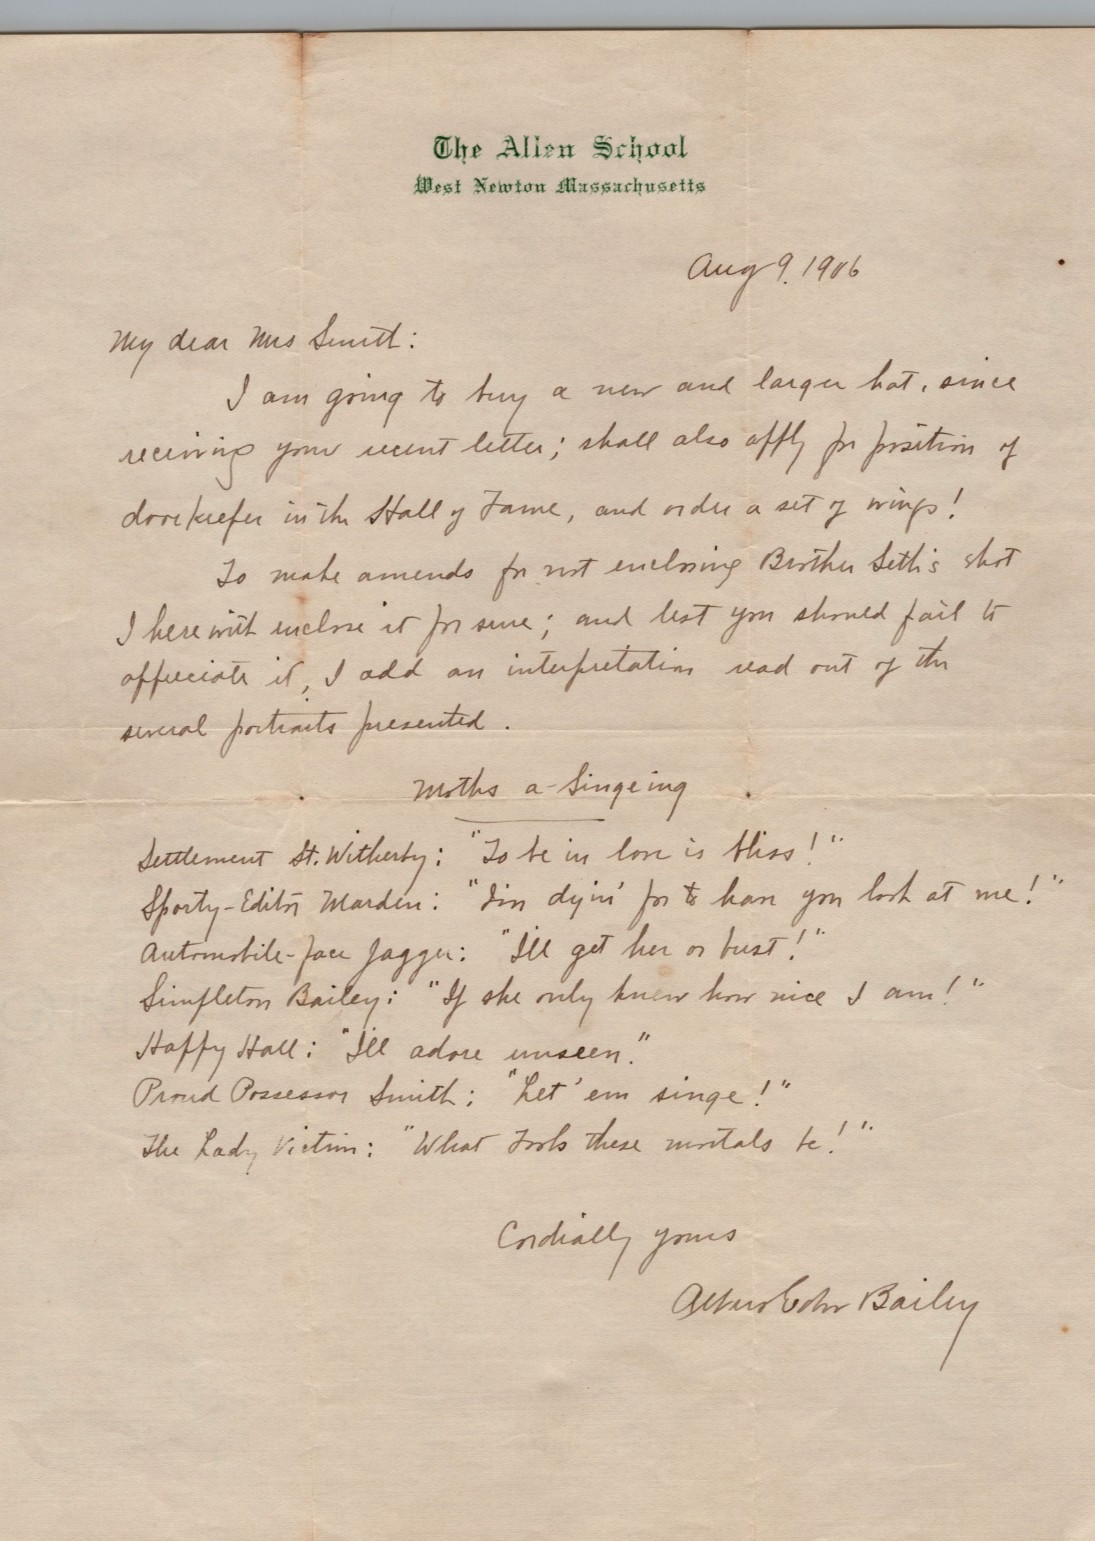 The Allen School
West Newton Massachusetts
Aug 9. 1906
My dear Mrs Smith:
I am going to buy a new and larger hat, since
receiving your recent letter; shall also apply for position of
doorkeeper in the Hall of Fame, and order a set of wings!
To make amends for not enclosing Brother Seth's shot
I herewith enclose it for sure; and lest you should fail to
appreciate it, I add an interpretation read out of the
several portraits presented.
Moths a-Singeing
Settlement St. Witherby: "To be in love is bliss!"
Sporty-Editor Marden: "I'm dyin' for to have you look at me!"
Automobile-face Jagger: "I'll get her or bust!"
Simpleton Bailey: "If she only knew how nice I am!"
Happy Hall: "I'll adore unseen."
Proud Possessor Smith: "Let 'em singe!"
The Lady Victim: "What Fools these mortals be!"
Cordially yours
Bailey